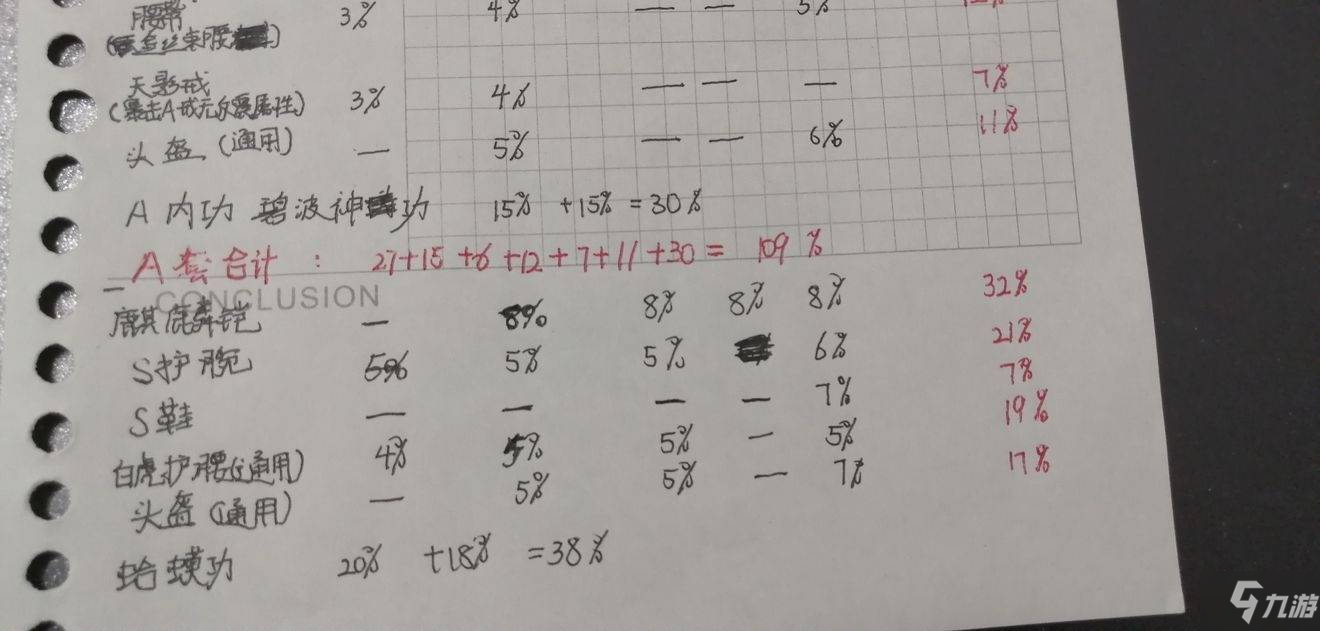 腰带 3% 4% — — 5% 12%
(金丝束腰)
天影戒
(暴击A或元尔爱属性) 3% 4% — — — 7%
头盔 (通用) — 5% — — 6% 11%
A 内功 碧波神功 15% +15% = 30%
A套合计 : 27+15+6+12+7+11+30 = 109 %
CONCLUSION
麒麟铠 — 8% 8% 8% 8% 32%
S护腕 5% 5% 5% 6% 21%
S鞋 — — — — 7% 7%
白虎护腰(通用) 4% 5% 5% — 5% 19%
头盔 (通用) — 5% 5% — 7% 17%
蛤蟆功 20% +18% =38%
九游